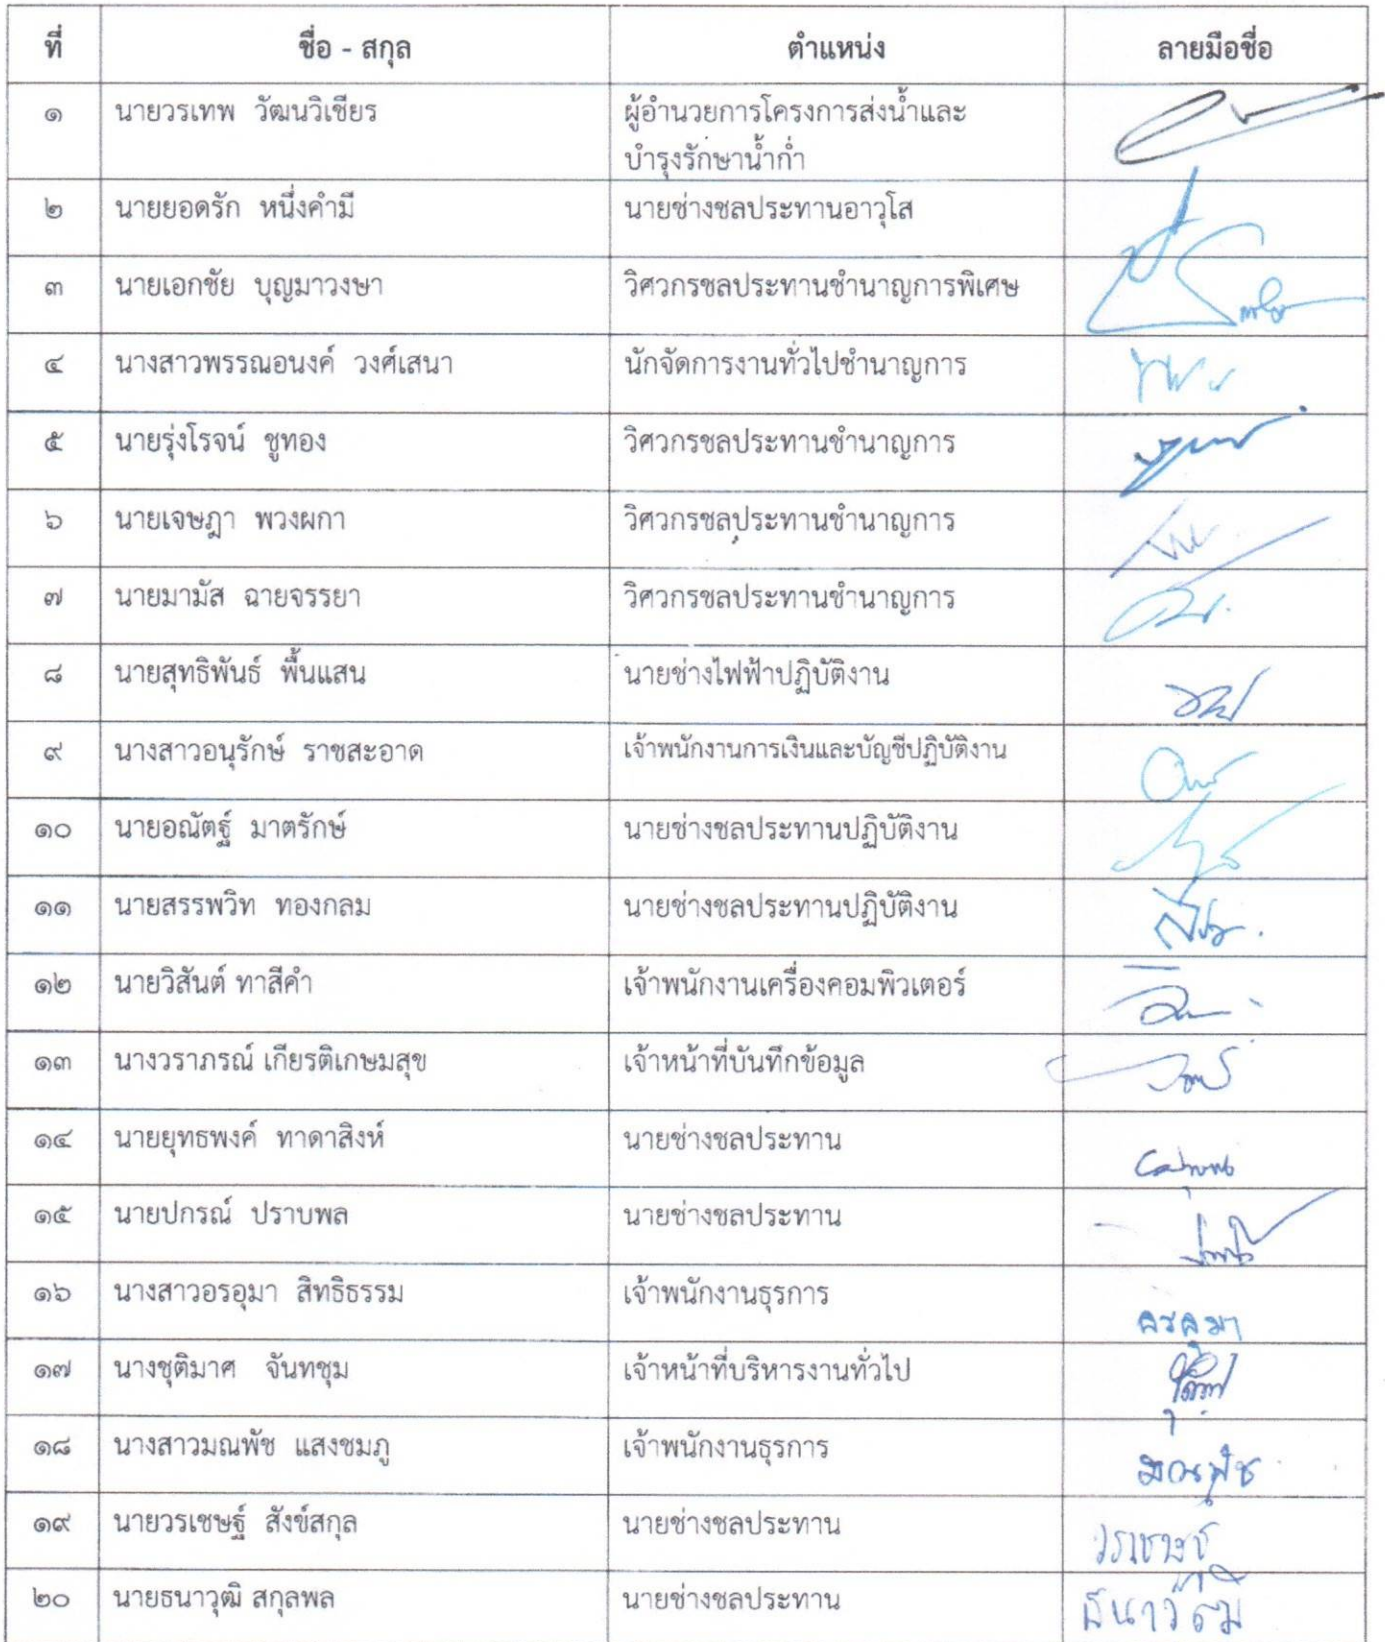 ที่ ชื่อ - สกุล ตำแหน่ง ลายมือชื่อ
๑ นายวรเทพ วัฒนวิเชียร ผู้อำนวยการโครงการส่งน้ำและ
บำรุงรักษาน้ำก่ำ
๒ นายยอดรัก หนึ่งคำมี นายช่างชลประทานอาวุโส
๓ นายเอกชัย บุญมาวงษา วิศวกรชลประทานชำนาญการพิเศษ
๔ นางสาวพรรณอนงค์ วงศ์เสนา นักจัดการงานทั่วไปชำนาญการ
๕ นายรุ่งโรจน์ ชูทอง วิศวกรชลประทานชำนาญการ
๖ นายเจษฎา พวงผกา วิศวกรชลประทานชำนาญการ
๗ นายมามัส ฉายจรรยา วิศวกรชลประทานชำนาญการ
๘ นายสุทธิพันธ์ พื้นแสน นายช่างไฟฟ้าปฏิบัติงาน
๙ นางสาวอนุรักษ์ ราชสะอาด เจ้าพนักงานการเงินและบัญชีปฏิบัติงาน
๑๐ นายอณัตฐ์ มาตรักษ์ นายช่างชลประทานปฏิบัติงาน
๑๑ นายสรรพวิท ทองกลม นายช่างชลประทานปฏิบัติงาน
๑๒ นายวิสันต์ ทาสีคำ เจ้าพนักงานเครื่องคอมพิวเตอร์
๑๓ นางวราภรณ์ เกียรติเกษมสุข เจ้าหน้าที่บันทึกข้อมูล
๑๔ นายยุทธพงค์ ทาดาสิงห์ นายช่างชลประทาน
๑๕ นายปกรณ์ ปราบพล นายช่างชลประทาน
๑๖ นางสาวอรอุมา สิทธิธรรม เจ้าพนักงานธุรการ อรอุมา
๑๗ นางชุติมาศ จันทชุม เจ้าหน้าที่บริหารงานทั่วไป
๑๘ นางสาวมณพัช แสงชมภู เจ้าพนักงานธุรการ มณพัช
๑๙ นายวรเชษฐ์ สังข์สกุล นายช่างชลประทาน วรเชษฐ์
๒๐ นายธนาวุฒิ สกุลพล นายช่างชลประทาน ธนาวุฒิ